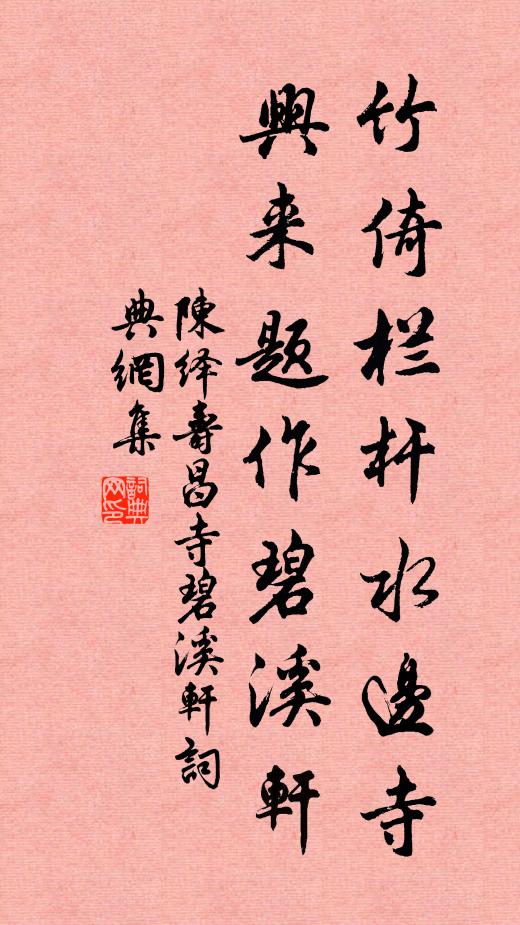 竹倚栏杆水邊寺
興来题作碧溪軒
陳绎壽昌寺碧溪軒詞
典網集
詞典网印